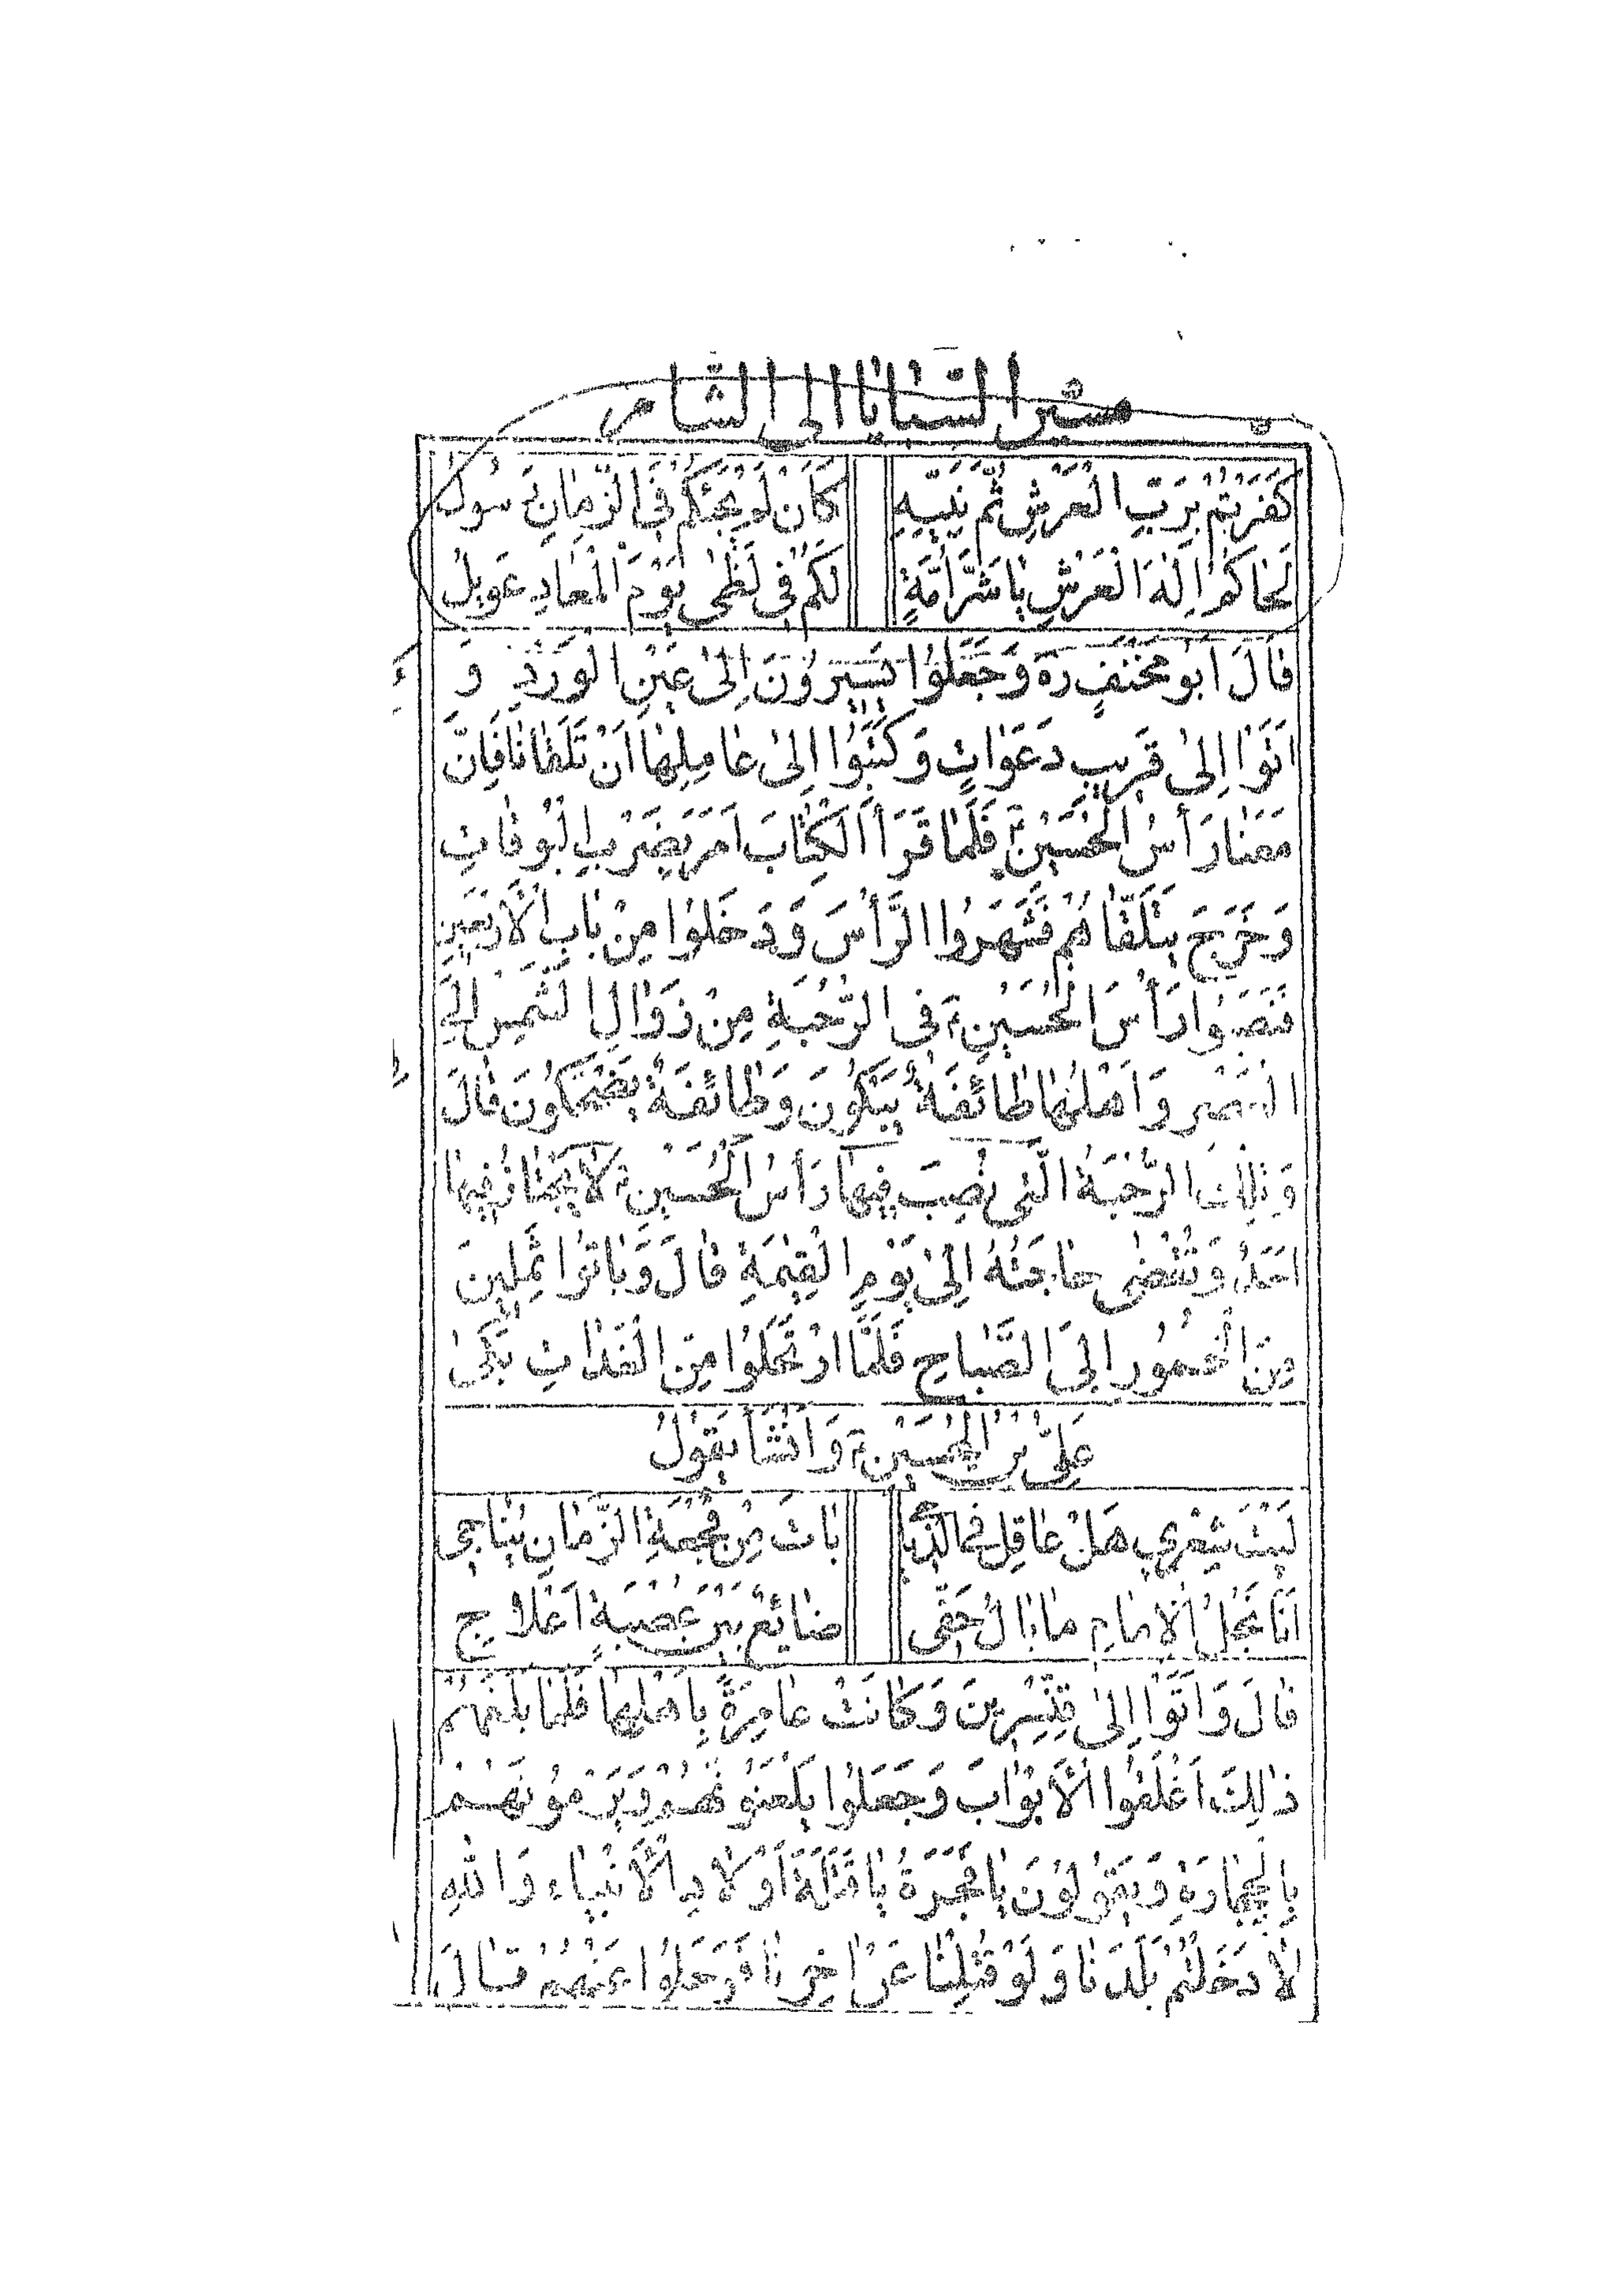 مسير السبايا الى الشام
كَفَرْتُمْ بِرَبِّ الْعَرْشِ ثُمَّ نَبِيِّهِ كَاَنْ لَمْ يَجِئْكُمْ فِي الزَّمٰانِ رَسُولُ
لَحٰاكُمْ اِلٰهُ الْعَرْشِ يٰا شَرَّ اُمَّةٍ لَكُمْ فِي لَظٰى يَوْمَ الْمَعٰادِ عَوِيلُ
قٰالَ اَبُو مِخْنَفٍ ره وَجَعَلُوا يَسِيرُونَ اِلىٰ عَيْنِ الْوَرْدِ وَ
اَتَوْا اِلىٰ قَرِيبِ دَعَوٰاتٍ وَكَتَبُوا اِلىٰ عٰامِلِهٰا اَنْ تَلَقّٰانٰا فَاِنَّ
مَعَنٰا رَأْسُ الْحُسَيْنِ ع فَلَمّٰا قَرَأَ الْكِتٰابَ اَمَرَ بِضَرْبِ الْبُوقٰاتِ
وَخَرَجَ يَتَلَقّٰاهُمْ فَشَهَرُوا الرَّأْسَ وَدَخَلُوا مِنْ بٰابِ الْاَرْبَعِينِ
فَنَصَبُوا رَأْسَ الْحُسَيْنِ ع فِي الرَّحْبَةِ مِنْ زَوٰالِ الشَّمْسِ اِلَى
الْعَصْرِ وَاَهْلُهٰا طٰائِفَةٌ يَبْكُونَ وَطٰائِفَةٌ يَضْحَكُونَ قٰالَ
وَتِلْكَ الرَّحْبَةُ الَّتِي نُصِبَ فِيهٰا رَأْسُ الْحُسَيْنِ ع لٰا يَجْتٰازُ فِيهٰا
اَحَدٌ وَتُقْضٰى حٰاجَتُهُ اِلىٰ يَوْمِ الْقِيٰمَةِ قٰالَ وَبٰاتُوا ثَمِلِينَ
مِنَ الْخُمُورِ اِلَى الصَّبٰاحِ فَلَمَّا ارْتَحَلُوا مِنَ الْغَدٰاتِ بَكىٰ
عَلِيُّ بْنُ الْحُسَيْنِ ع وَاَنْشَأَ يَقُولُ
لَيْتَ شِعْرِي هَلْ عٰاقِلٌ فِي الدَّيٰاجِي بٰاتَ مِنْ فَجْعَةِ الزَّمٰانِ يُنٰاجِي
اَنَا نَجْلُ الْاِمٰامِ مٰا بٰالُ حَقِّي ضٰايِعٌ بَيْنَ عُصْبَةٍ اَعْلٰاجِ
قٰالَ وَاَتَوْا اِلىٰ قِنَّسْرِينَ وَكٰانَتْ عٰامِرَةً بِاَهْلِهٰا فَلَمّٰا بَلَغَهُمْ
ذٰلِكَ اَغْلَقُوا الْاَبْوٰابَ وَجَعَلُوا يَلْعَنُونَهُمْ وَيَرْمُونَهُمْ
بِالْحِجٰارَةِ وَيَقُولُونَ يٰا فَجَرَةُ يٰا قَتَلَةَ اَوْلٰادِ الْاَنْبِيٰاءِ وَاللّٰهِ
لٰا دَخَلْتُمْ بَلَدَنٰا وَلَوْ قُتِلْنٰا عَنْ اٰخِرِنٰا فَرَحَلُوا عَنْهُمْ قٰالَ